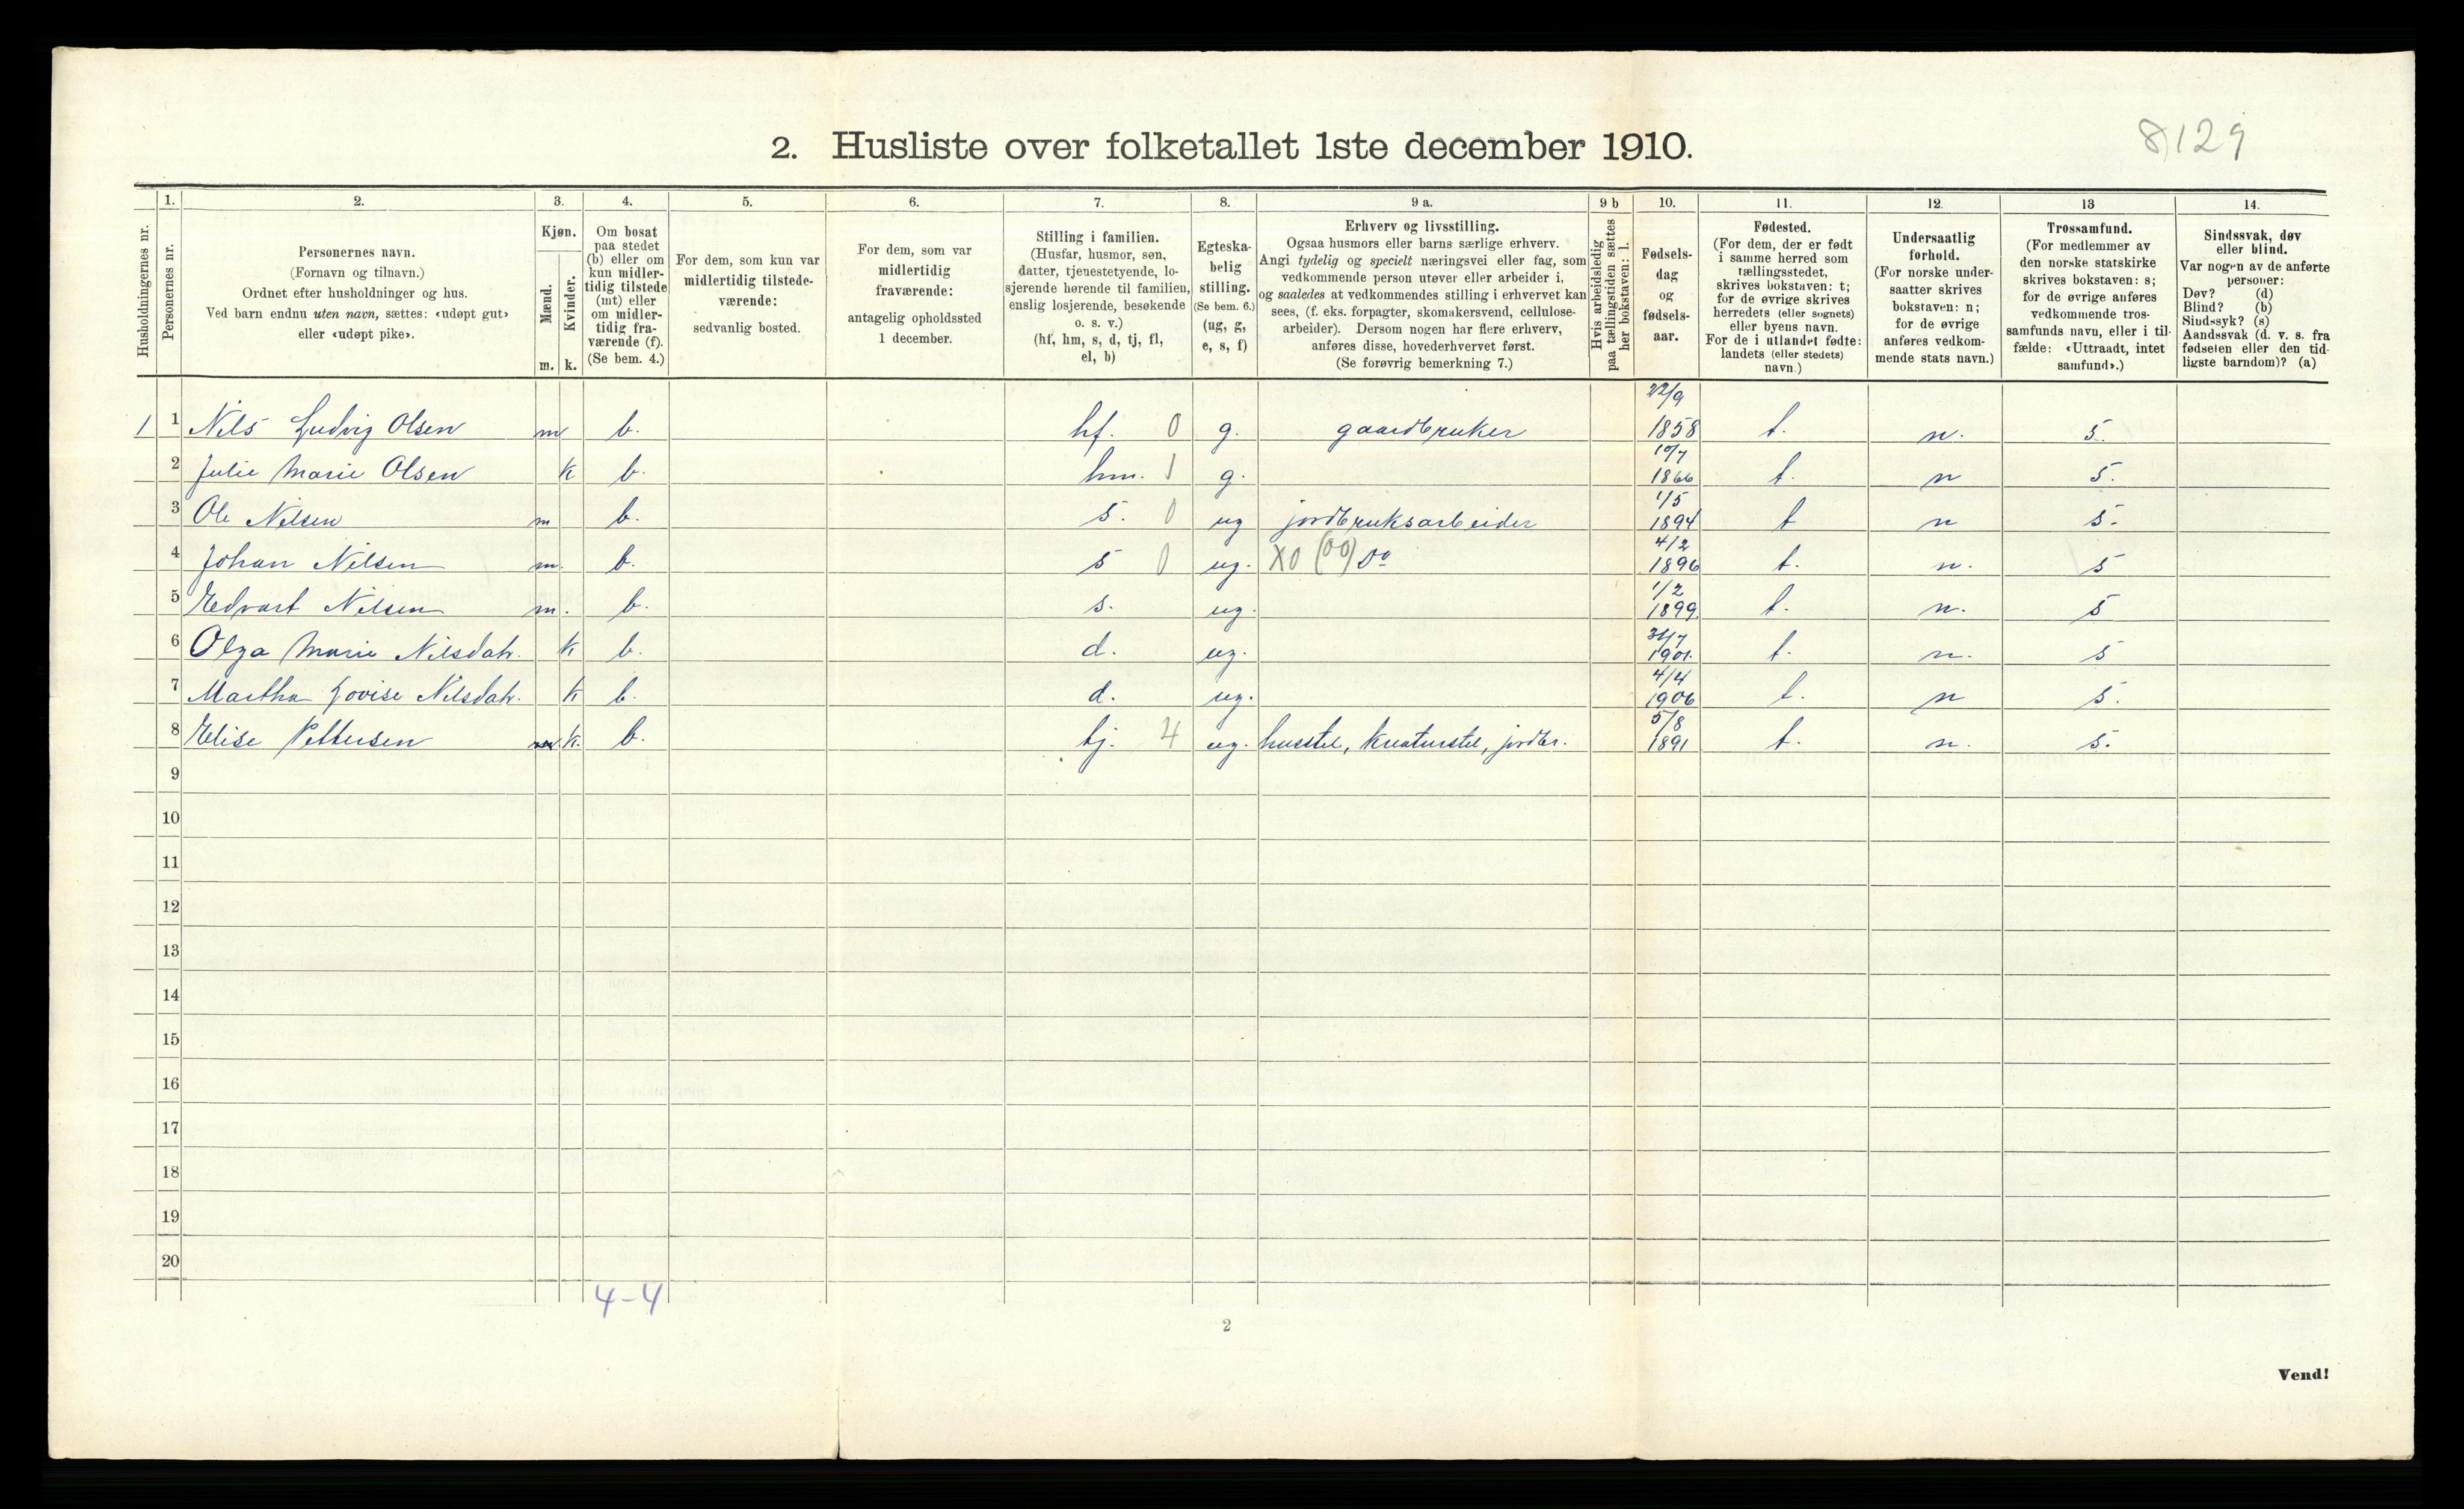 8129
2. Husliste over folketallet 1ste december 1910.
Husholdningernes nr.
1.
Personernes nr.
2.
Personernes navn.
(Fornavn og tilnavn.)
Ordnet efter husholdninger og hus.
Ved barn endnu uten navn, sættes: «udøpt gut»
eller «udøpt pike».
3.
Kjøn.
Mænd.
m.
Kvinder.
k.
4.
Om bosat
paa stedet
(b) eller om
kun midler-
tidig tilstede
(mt) eller
om midler-
tidig fra-
værende (f).
(Se bem. 4.)
5.
For dem, som kun var
midlertidig tilstede-
værende:
sedvanlig bosted.
6.
For dem, som var
midlertidig
fraværende:
antagelig opholdssted
1 december.
7.
Stilling i familien.
(Husfar, husmor, søn,
datter, tjenestetyende, lo-
sjerende hørende til familien,
enslig losjerende, besøkende
o. s. v.)
(hf, hm, s, d, tj, fl,
el, b)
8.
Egteska-
belig
stilling.
(Se bem. 6.)
(ug, g,
e, s, f)
9 a.
Erhverv og livsstilling.
Ogsaa husmors eller barns særlige erhverv.
Angi tydelig og specielt næringsvei eller fag, som
vedkommende person utøver eller arbeider i,
og saaledes at vedkommendes stilling i erhvervet kan
sees, (f. eks. forpagter, skomakersvend, cellulose-
arbeider). Dersom nogen har flere erhverv,
anføres disse, hovederhvervet først.
(Se forøvrig bemerkning 7.)
9 b
Hvis arbeidsledig
paa tællingstiden sættes
her bokstaven: l.
10.
Fødsels-
dag
og
fødsels-
aar.
11.
Fødested.
(For dem, der er født
i samme herred som
tællingsstedet,
skrives bokstaven: t;
for de øvrige skrives
herredets (eller sognets)
eller byens navn.
For de i utlandet fødte:
landets (eller stedets)
navn.)
12.
Undersaatlig
forhold.
(For norske under-
saatter skrives
bokstaven: n;
for de øvrige
anføres vedkom-
mende stats navn.)
13
Trossamfund.
(For medlemmer av
den norske statskirke
skrives bokstaven: s;
for de øvrige anføres
vedkommende tros-
samfunds navn, eller i til-
fælde: «Uttraadt, intet
samfund».)
14.
Sindssvak, døv
eller blind.
Var nogen av de anførte
personer:
Døv? (d)
Blind? (b)
Sindssyk? (s)
Aandssvak (d. v. s. fra
fødselen eller den tid-
ligste barndom)? (a)
1 1 Nils Ludvig Olsen m b. hf. 0 g. gaardbruker 22/9 1858 t. n. s.
2 Julie Marie Olsen k b. hm. 1 g. 10/7 1866 t. n s.
3 Ole Nilsen m b. s. 0 ug jordbruksarbeider 1/5 1894 t n s.
4 Johan Nilsen m. b. s 0 ug. X0 (00) do 4/2 1896 t. n. s
5 Edvart Nilsen m. b. s. ug. 1/2 1899 t. n. s
6 Olga Marie Nilsdatr. k b. d. ug. 31/7 1901. t. n. s
7 Martha Lovise Nilsdatr. k b. d. ug. 4/4 1906 t. n s.
8 Elise Pettersen k. b. tj. 4 ug. husstel, kreaturstel, jordbr. 5/8 1891 t. n. s.
9
10
11
12
13
14
15
16
17
18
19
20
4-4
2
Vend!